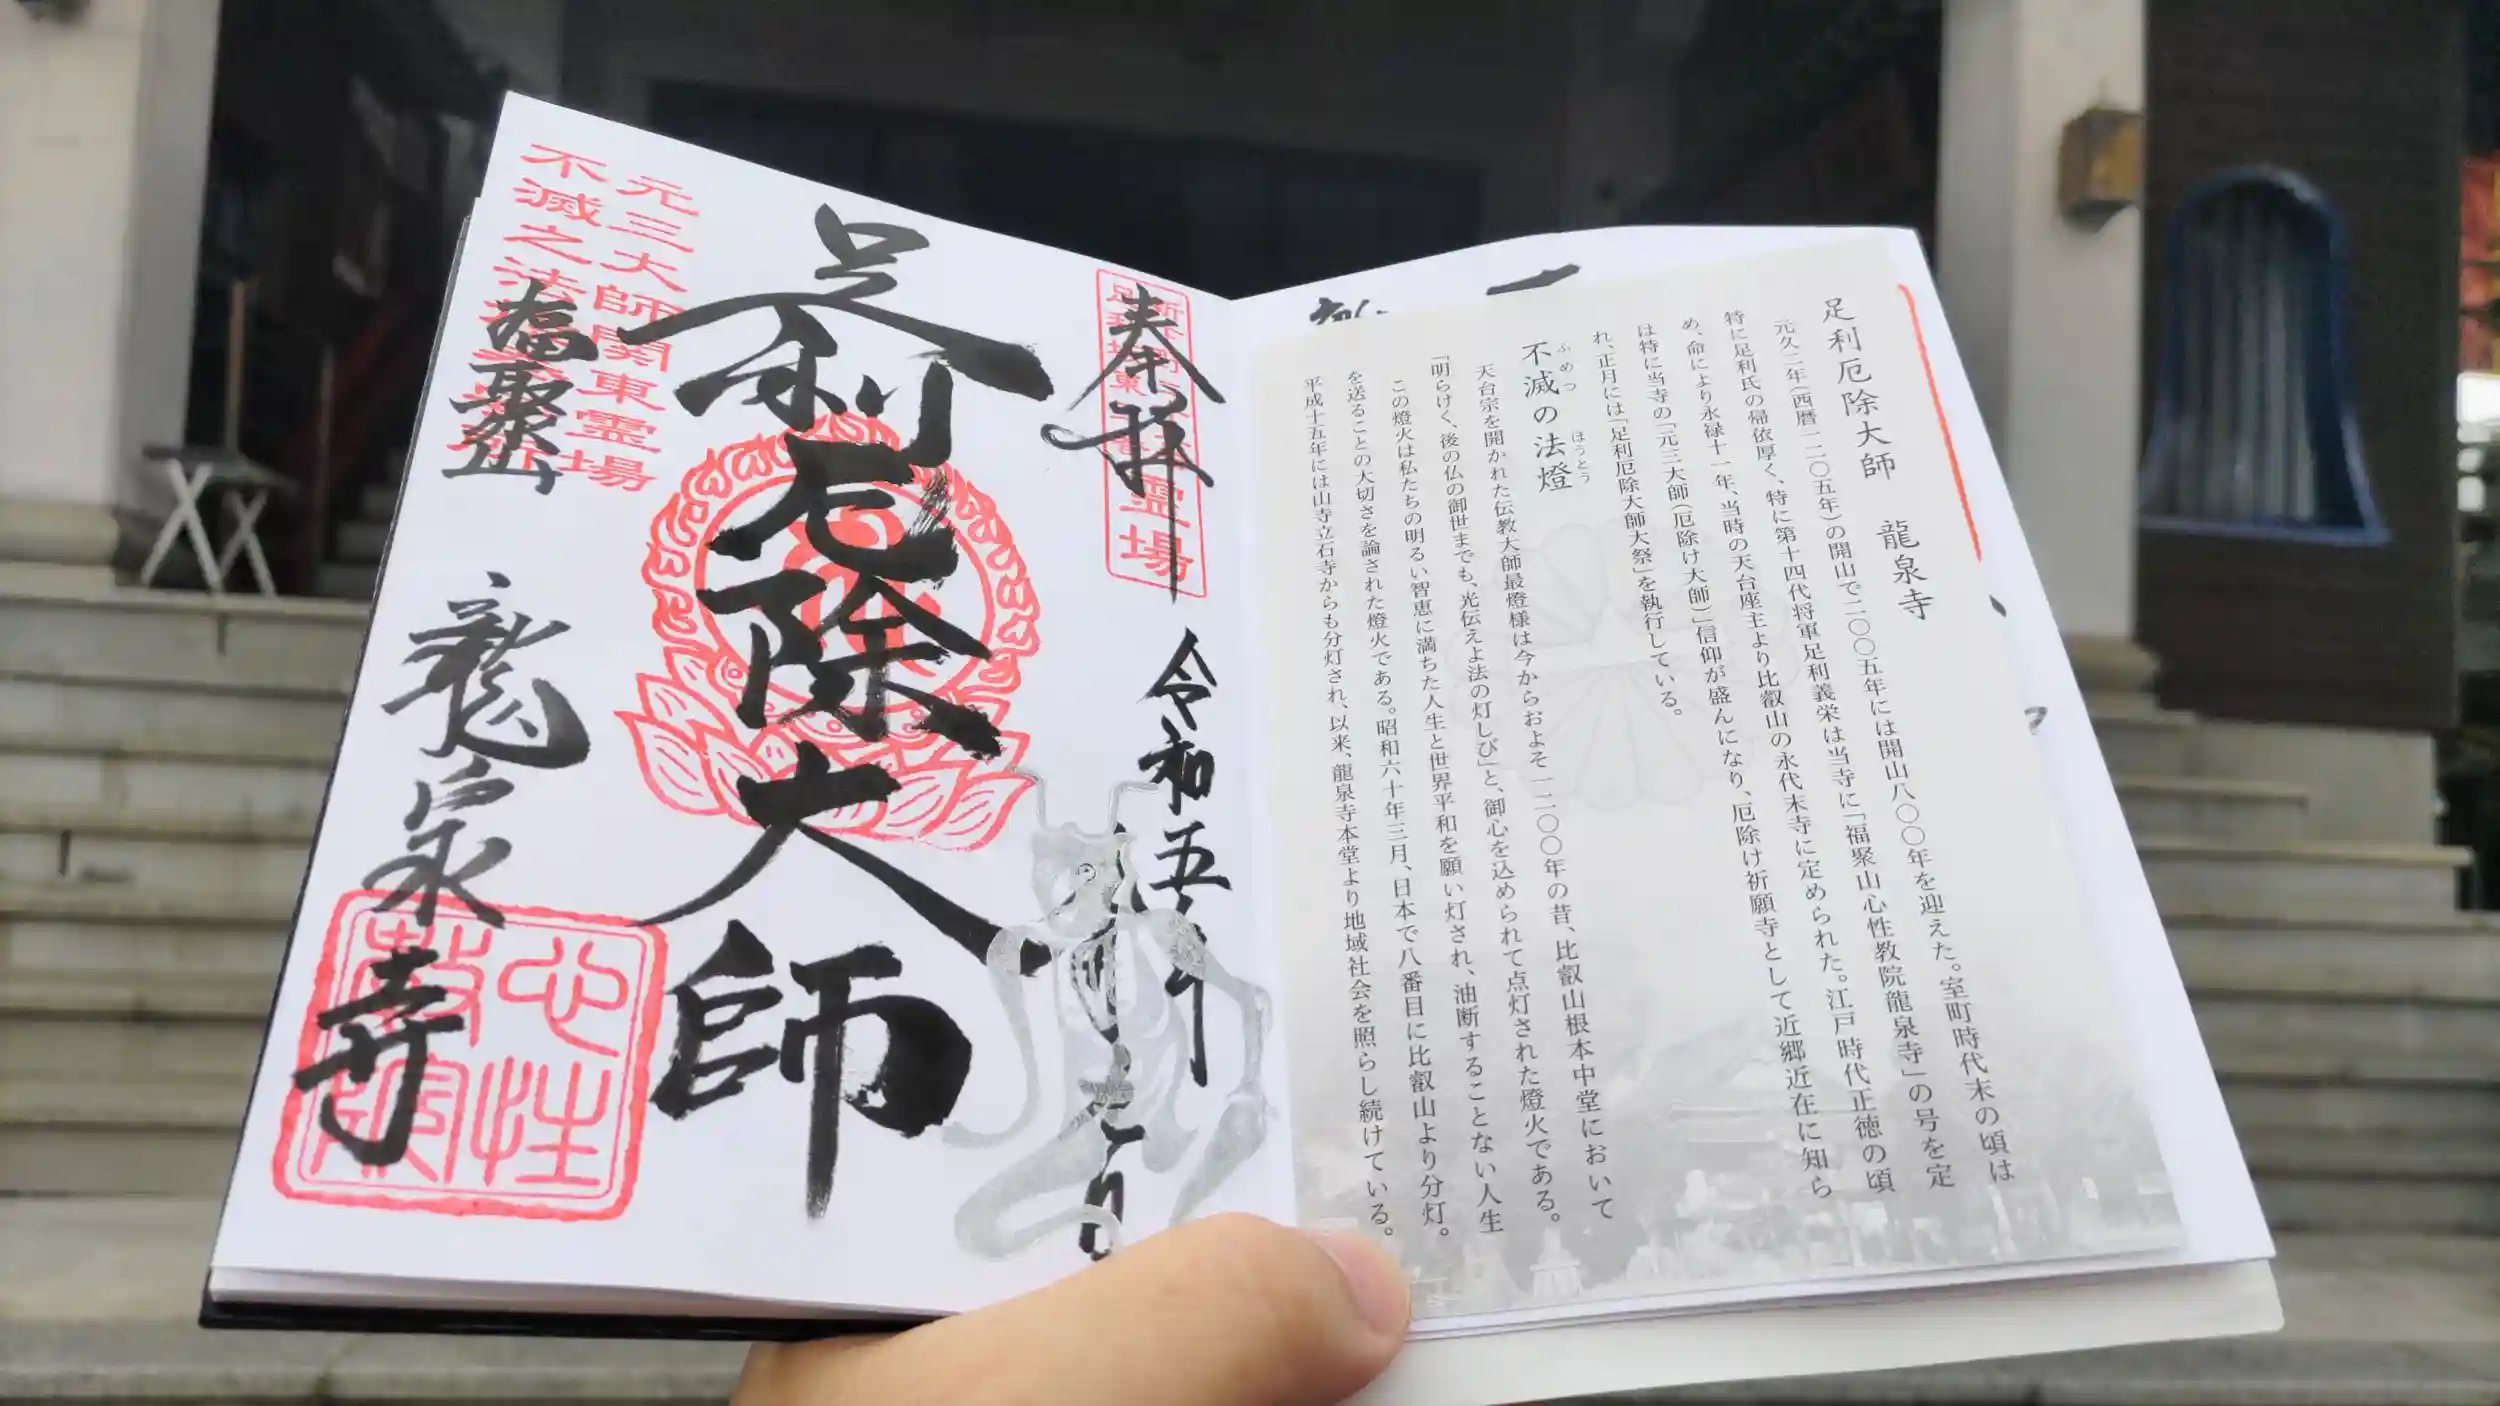 足利厄除大師　龍泉寺
元久二年(西暦一二〇五年)の開山で二〇〇五年には開山八〇〇年を迎えた。室町時代末の頃は
特に足利氏の帰依厚く、特に第十四代将軍足利義栄は当寺に「福聚山心性教院龍泉寺」の号を定
め、命により永禄十一年、当時の天台座主より比叡山の永代末寺に定められた。江戸時代正徳の頃
は特に当寺の「元三大師(厄除け大師)」信仰が盛んになり、厄除け祈願寺として近郷近在に知ら
れ、正月には「足利厄除大師大祭」を執行している。
不滅の法燈
ふめつ　ほうとう
天台宗を開かれた伝教大師最燈様は今からおよそ一二〇〇年の昔、比叡山根本中堂において
「明らけく、後の仏の御世までも、光伝えよ法の灯しび」と、御心を込められて点灯された燈火である。
この燈火は私たちの明るい智恵に満ちた人生と世界平和を願い灯され、油断することない人生
を送ることの大切さを論された燈火である。昭和六十年三月、日本で八番目に比叡山より分灯。
平成十五年には山寺立石寺からも分灯され、以来、龍泉寺本堂より地域社会を照らし続けている。
奉拝
霊場
令和五年
足利厄除大師
元三大師関東霊場
不滅之法
福聚山
龍泉寺
心性教院